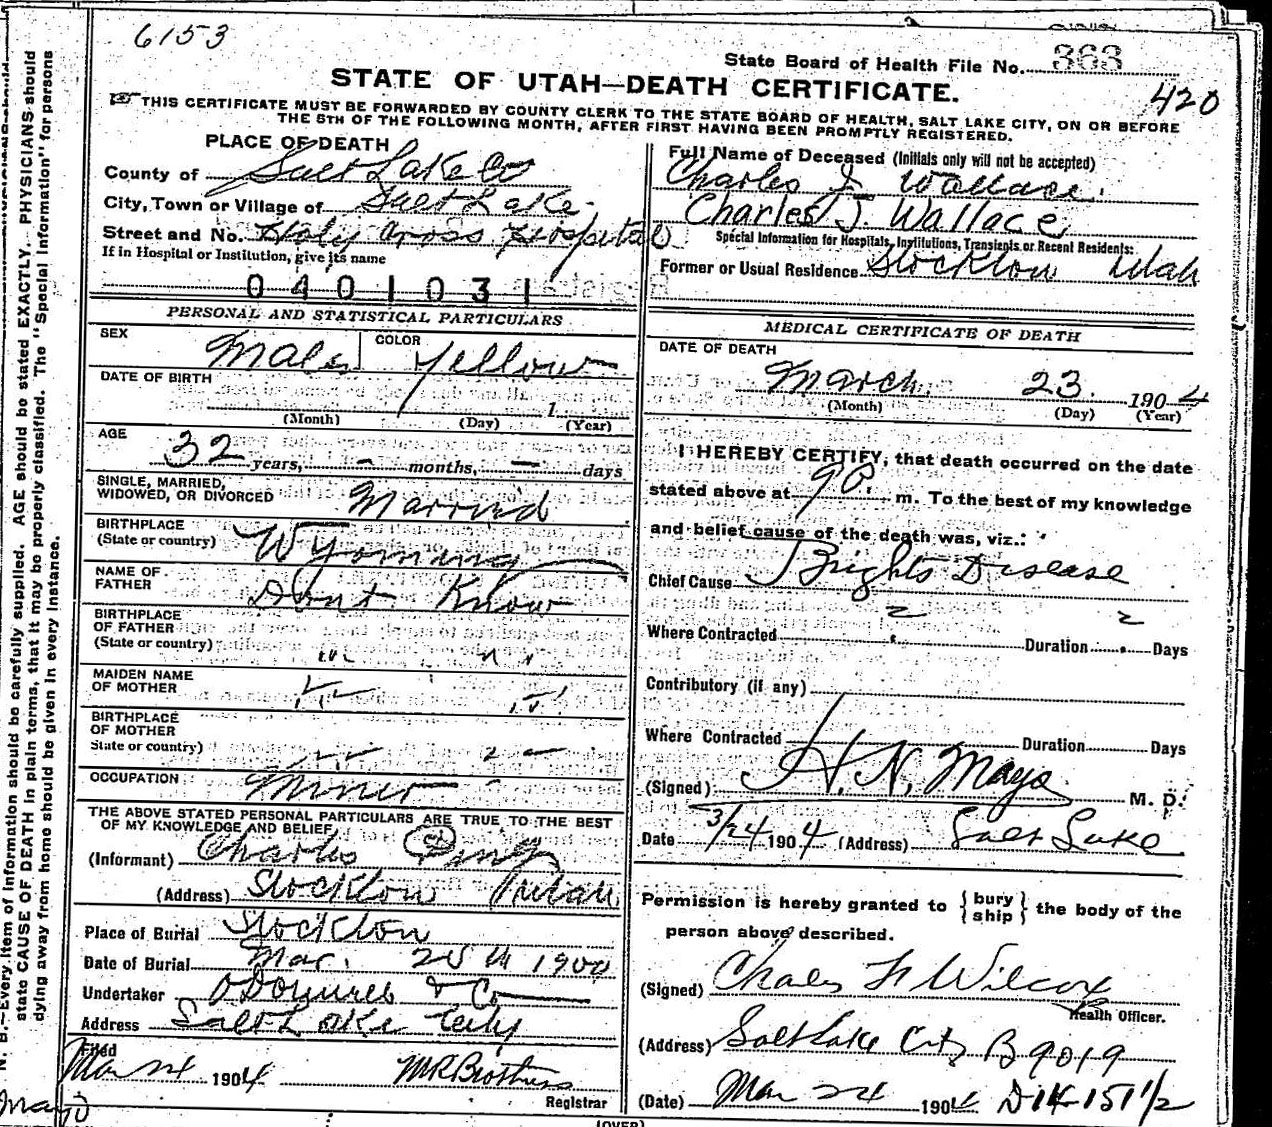 6153
State Board of Health File No. 363
STATE OF UTAH—DEATH CERTIFICATE.
420
THIS CERTIFICATE MUST BE FORWARDED BY COUNTY CLERK TO THE STATE BOARD OF HEALTH, SALT LAKE CITY, ON OR BEFORE
THE 5TH OF THE FOLLOWING MONTH, AFTER FIRST HAVING BEEN PROMPTLY REGISTERED.
PLACE OF DEATH
County of Salt Lake Co
City, Town or Village of Salt Lake
Street and No. Holy Cross Hospital
If in Hospital or Institution, give its name
0401031
Full Name of Deceased (Initials only will not be accepted)
Charles J. Wallace.
Charles J Wallace
Special Information for Hospitals, Institutions, Transients or Recent Residents:
Former or Usual Residence Stockton Utah
PERSONAL AND STATISTICAL PARTICULARS
SEX Male COLOR Yellow
DATE OF BIRTH 1
(Month) (Day) (Year)
AGE
32 years, – months, – days
SINGLE, MARRIED,
WIDOWED, OR DIVORCED Married
BIRTHPLACE
(State or country) Wyoming
NAME OF
FATHER Dont Know
BIRTHPLACE
OF FATHER
(State or country) " "
MAIDEN NAME
OF MOTHER " "
BIRTHPLACE
OF MOTHER
State or country) " "
OCCUPATION Miner
THE ABOVE STATED PERSONAL PARTICULARS ARE TRUE TO THE BEST
OF MY KNOWLEDGE AND BELIEF
(Informant) Charles
(Address) Stockton Utah
Place of Burial Stockton
Date of Burial Mar. 25th 190
Undertaker & Co
Address Salt Lake City
Filed
Mar 24 1904
Registrar
MEDICAL CERTIFICATE OF DEATH
DATE OF DEATH
March 23. 1904
(Month) (Day) (Year)
I HEREBY CERTIFY, that death occurred on the date
stated above at 9 P. m. To the best of my knowledge
and belief cause of the death was, viz.:
Chief Cause Brights Disease
Where Contracted ? Duration ? Days
Contributory (if any)
Where Contracted Duration Days
(Signed) H. N. Mayo M. D.
Date 3/24 1904 (Address) Salt Lake
Permission is hereby granted to { bury ship } the body of the
person above described.
(Signed) Charles F Wilcox
Health Officer.
(Address) Salt Lake City B 9019
(Date) Mar 24 1904 D 14 151 1/2
(OVER)
N. B.—Every item of information should be carefully supplied. AGE should be stated EXACTLY. PHYSICIANS should
state CAUSE OF DEATH in plain terms, that it may be properly classified. The "Special Information" for persons
dying away from home should be given in every instance.
Mayo